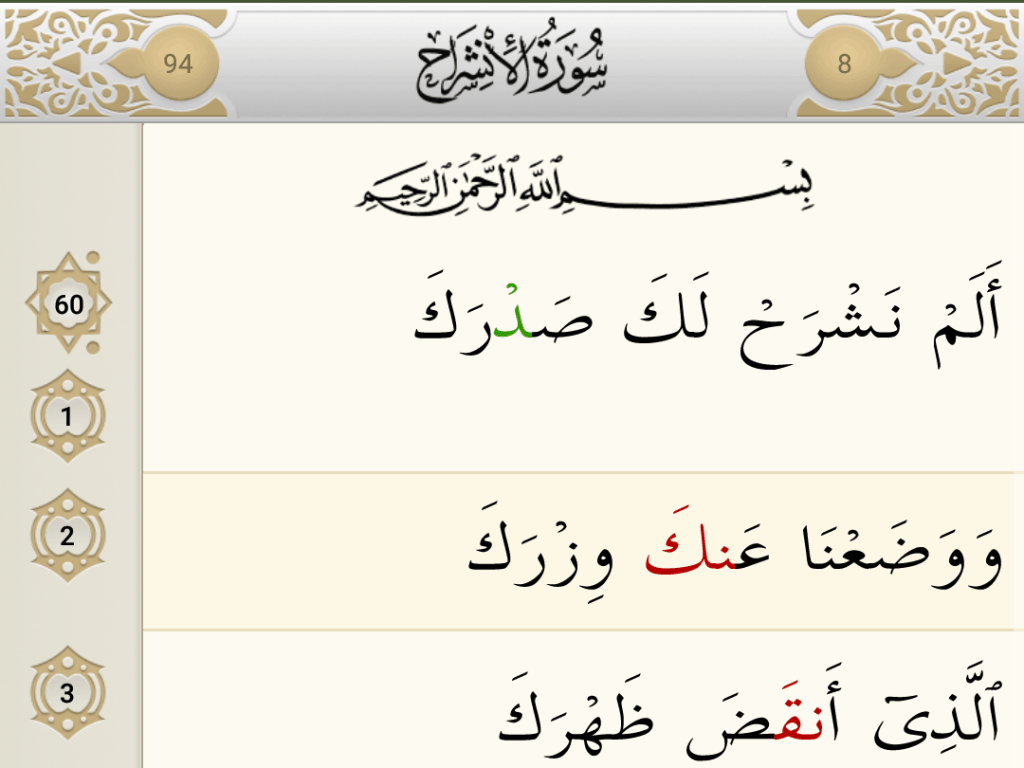 94 سُورَةُ الْأَنْشِرَاح 8
بِسْمِ ٱللَّهِ ٱلرَّحْمَٰنِ ٱلرَّحِيمِ
60
أَلَمْ نَشْرَحْ لَكَ صَدْرَكَ
1
وَوَضَعْنَا عَنكَ وِزْرَكَ
2
ٱلَّذِىٓ أَنقَضَ ظَهْرَكَ
3